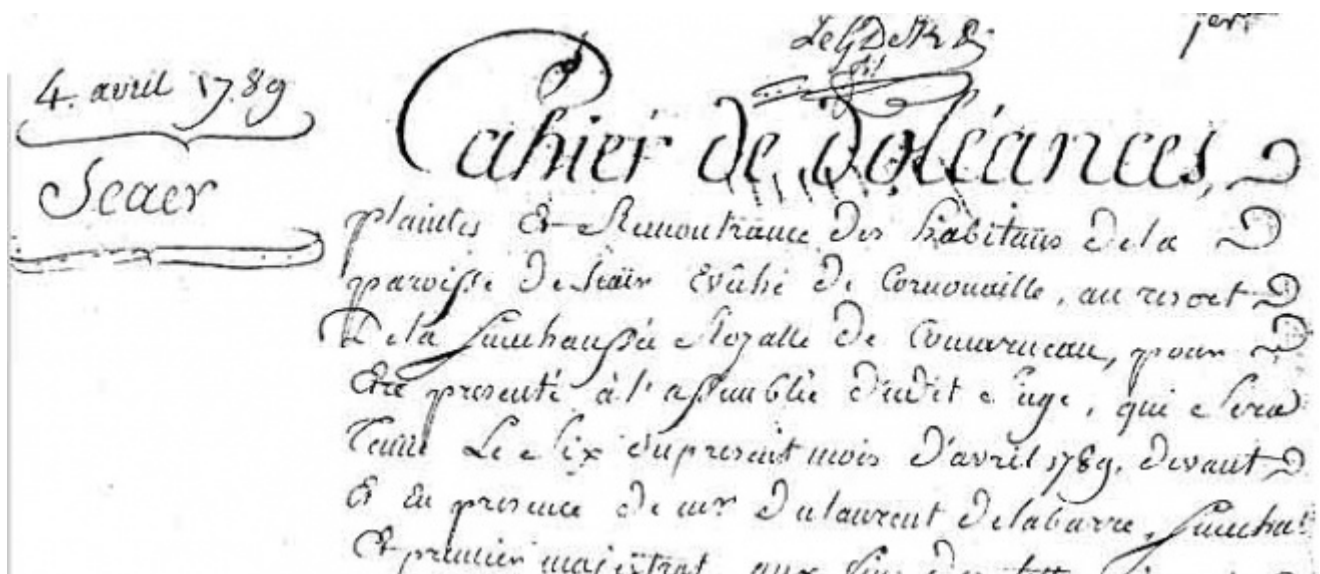 4. avril 1789
Scaer
Cahier de doléances,
plaintes et Remontrance des habitans de la
paroisse de Scaër Evêché de Cornouaille, au resort
De la Senechaussée Royalle de Concarneau, pour
Etre presenté à l'assemblée dudit siege, qui sera
Tenue Le six du present mois d'avril 1789. devant
Et En presence de mr dulaurent delabarre, Senechal
Et premier majistrat, aux fins